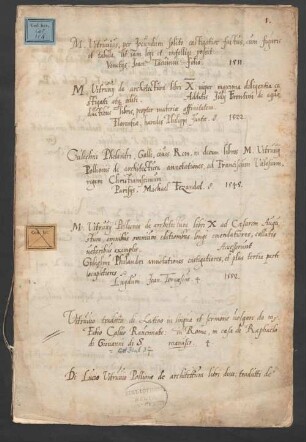 1.
M. Vitruvius, per Jucundum solito castigatior factus, cum figuris
et tabula, ut iam legi et intelligi possit
Venetijs Joan. Tacuinus folio 1511
M. Vitruvij de architectura libri X nuper maxima diligentia ca
stigati atq. editi. Additis Julij Frontini de aquae
ductibus libris, propter materiae affinitatem
Florentiae, haeredes Philippi Juntae 8.
Gulielmi Philandri, Galli, civis Rom. in decem libros M. Vitruvij
Pollionis de architectura annotationes ad Franciscum Valesium,
regem Christianissimum
Parisijs Michael Fezandat 8.
M. Vitruvij Pollionis de architectura libri X ad Caesarem Augu
stum, omnibus omnium editionibus longe emendatiores, collatis
veteribus exemplis. Accesserunt
Gulielmi Philandri annotationes castigatiores, et plus tertia parte
locupletiores
Lugduni Joan. Tornesius 4
Vitruvio tradotto di Latino in lingua et sermone volgare da m.
Fabio Calvo Ravennate in Roma, in casa di Raphaelo
di Giovanni di S.
Di Lucio Vitruvio Pollione de architettura libri dieci, tradutti de